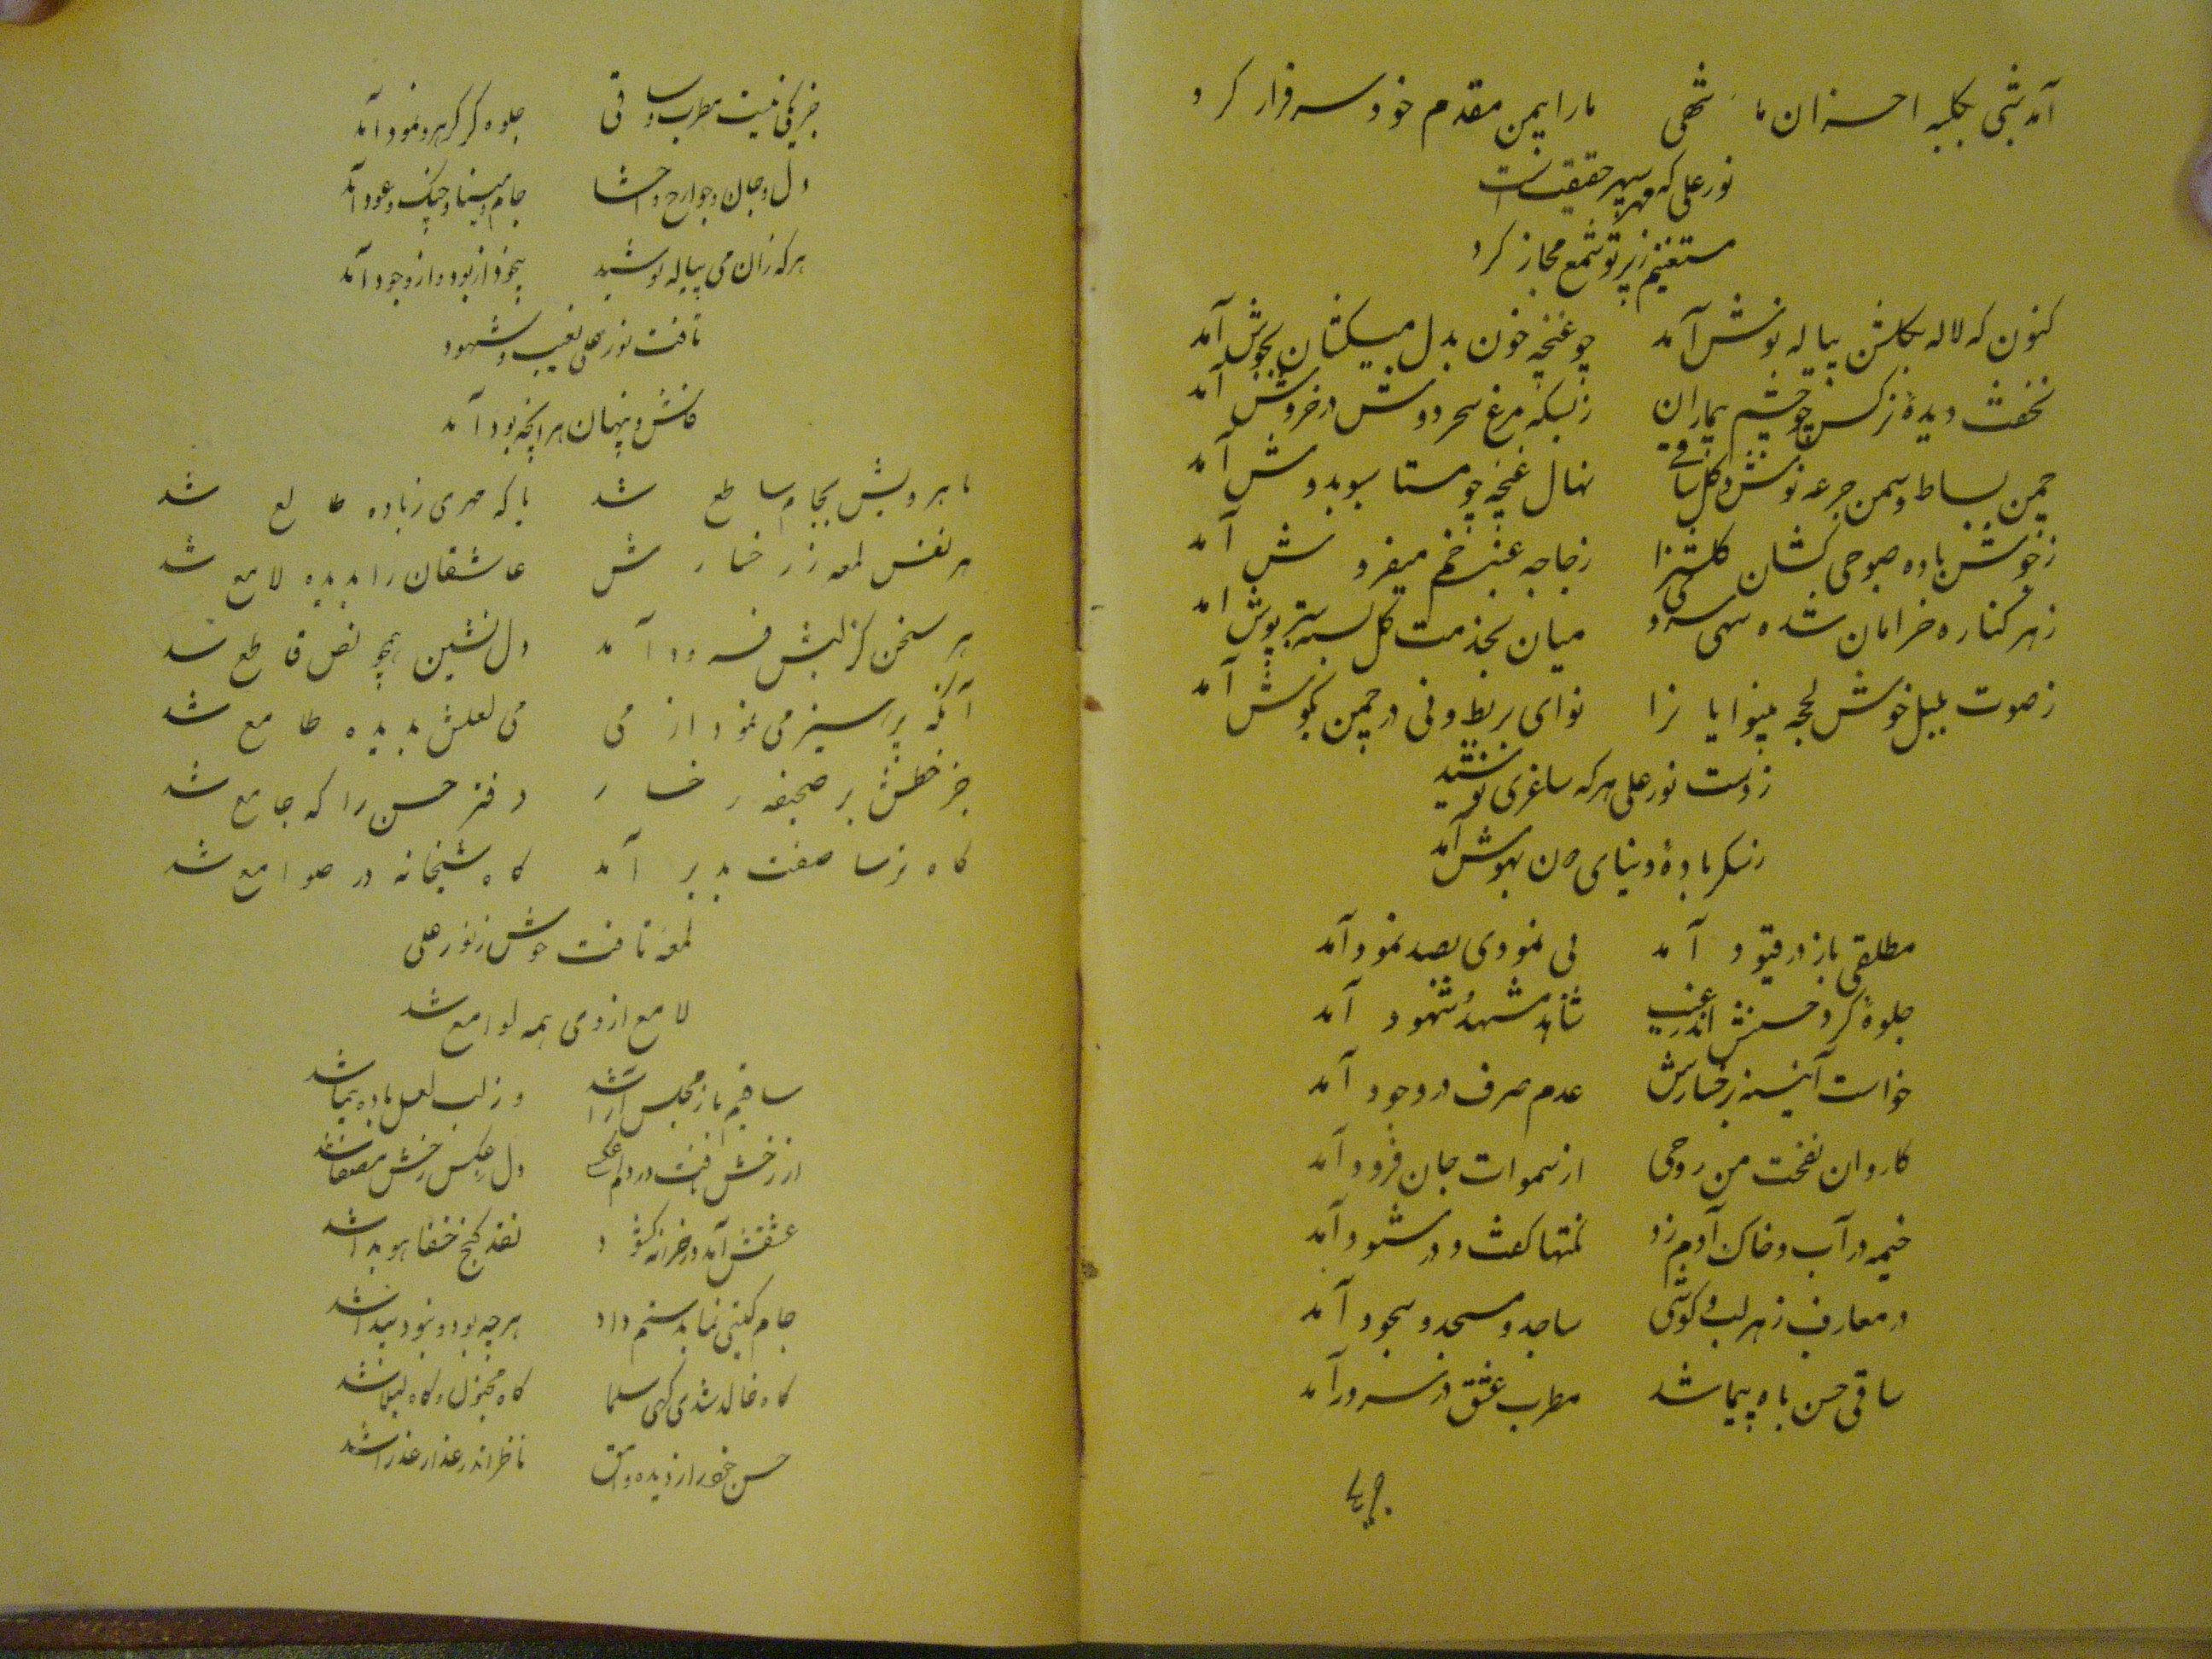 آمد شبی بکلبه احزان ما شهی مارا بیمن مقدم خود سرفراز کرد
نور علی که مهر سپهر حقیقت است
مستغنیم ز پرتو شمع مجاز کرد
کنون که لاله بگلشن پیاله نوش آمد چو غنچه خون بدل میکشان بجوش آمد
نخفت دیدهٔ نرگس چو چشم بیماران ز بسکه مرغ سحر دوش در خروش آمد
چمن بساط و سمن جرعه نوش و گل ساقی نهال غنچه چو مستا سبو بدوش آمد
ز خوش باده صبوحی کشان گلشن را زجاجه عنب خم میفروش آمد
ز هر کناره خرامان شده سهی سروی میان بخدمت گل بسته سبزپوش آمد
ز صوت بلبل خوش لهجه بینوایا نرا نوای بربط و نی در چمن بگوش آمد
ز دست نور علی هرکه ساغری نوشید
ز سکر بادهٔ دنیای دون بهوش آمد
مطلقی باز در قیود آمد بی نمودی بصد نمود آمد
جلوهٔ کرد حسنش اندر غیب شاهد مشهد شهود آمد
خواست آئینه ز رخسارش عدم صرف در وجود آمد
کاروان نفخت من روحی از سموات جان فرود آمد
خیمه در آب و خاک آدم زد نمتها گفت و در شنود آمد
در معارف ز هر لب و گوشی ساجد و مسجد و سجود آمد
ساقی حسن باده پیما شد مطرب عشق در سرود آمد
جز یکی نیست مطرب و ساقی جلوه گر گر هر و نمود آمد
دل و جان و جوارح و احشا جام و مینا و چنگ و عود آمد
هر که زان می پیاله نوشید بیخود از بود و از وجود آمد
تافت نور علی بغیب و شهود
فاش و پنهان هر آنچه بود آمد
ماهرویش بجام ساطع شد یا که مهری ز باده طالع شد
هر نفس لمعه ز رخسارش عاشقان را بدیده لامع شد
هر سخن کز لبش فرود آمد دل نشین همچو نص قاطع شد
آنکه پرهیز می نمود از می می لعلش بدیده طامع شد
جز خطش بر صحیفه رخسار دفتر حسن را که جامع شد
گاه ترسا صفت بدیر آمد گاه شیخانه در صوامع شد
لمعهٔ تافت خوش ز نور علی
لامع از وی همه لوامع شد
ساقیم باز مجلس آرا شد وز لب لعل باده پیما شد
از رخش تافت در دلم عکسی دل ز عکس رخش مصفا شد
عشقش آمد در خزانه گشود نقد گنج خفا هویدا شد
جام گیتی نما بدستم داد هرچه بود و نبود پیدا شد
گاه خالد شدی گهی سلما گاه مجنون و گاه لیلا شد
حسن خود را ز دیده وامق ناظر اندر عذار عذرا شد